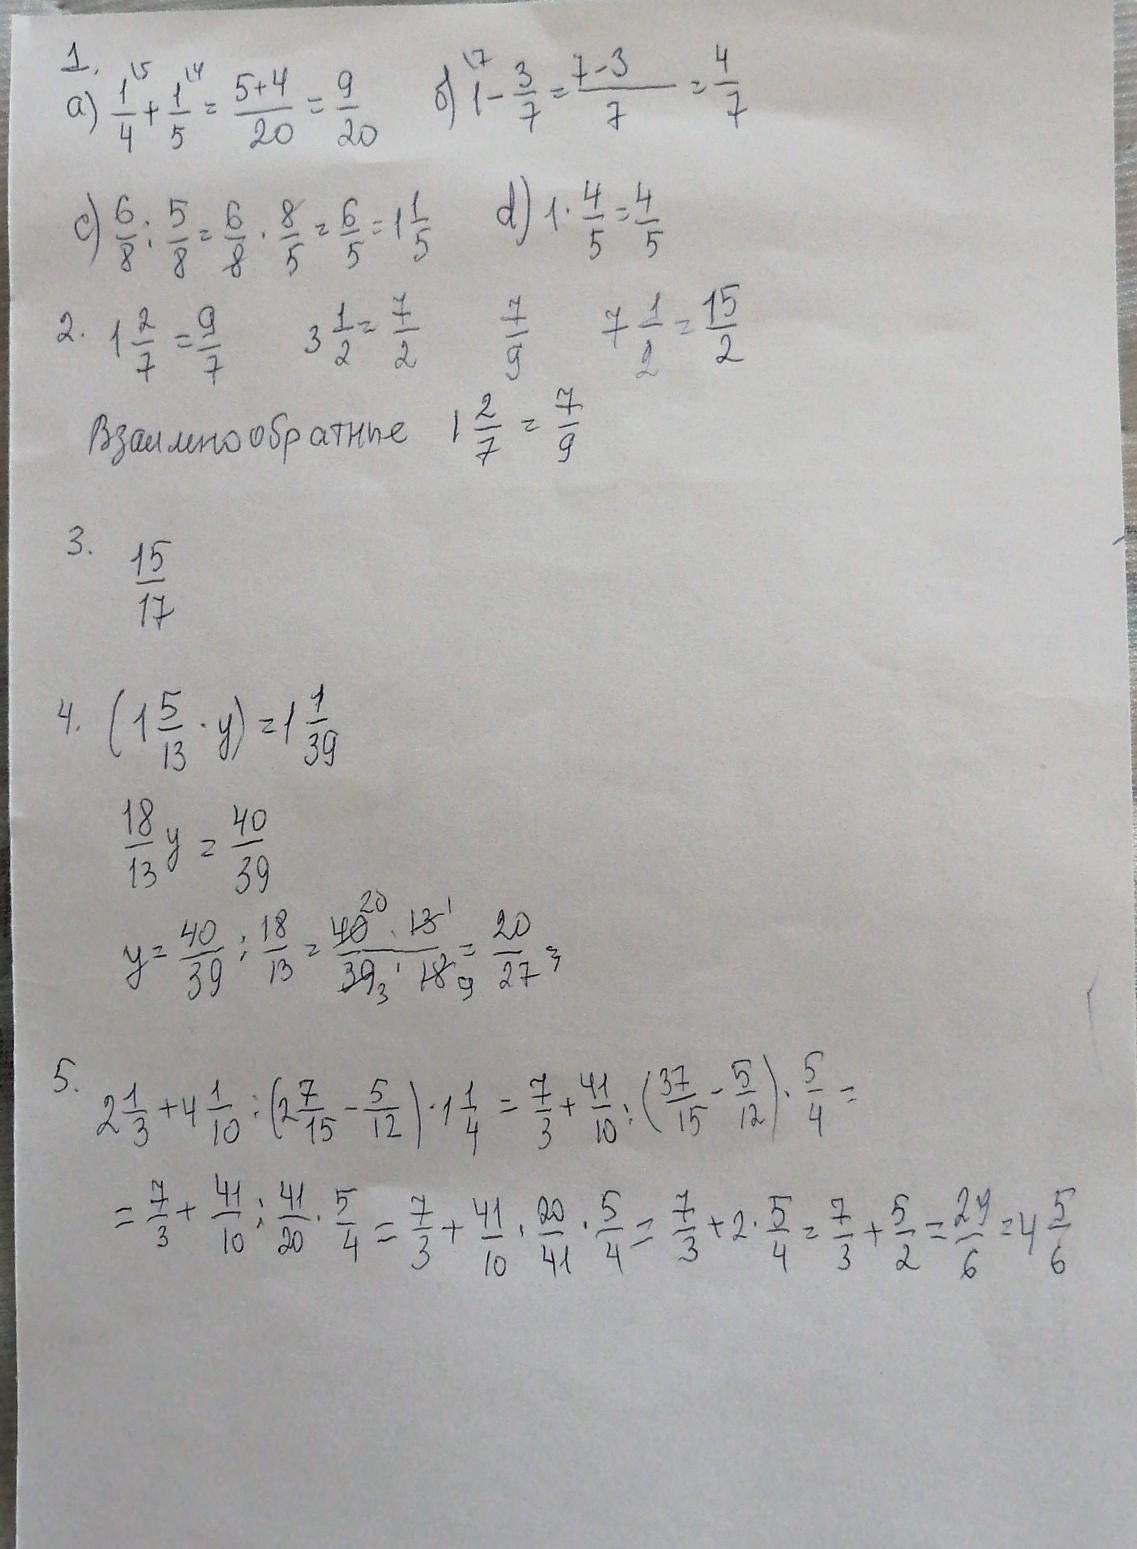 1.
а) 1/4 \5 + 1/5 \4 = (5+4)/20 = 9/20 б) 1 \7 - 3/7 = (7-3)/7 = 4/7
c) 6/8 : 5/8 = 6/8 · 8/5 = 6/5 = 1 1/5 d) 1 · 4/5 = 4/5
2. 1 2/7 = 9/7 3 1/2 = 7/2 7/9 7 1/2 = 15/2
Взаимнообратные 1 2/7 = 7/9
3. 15/17
4. (1 5/13 · y) = 1 1/39
18/13 y = 40/39
y = 40/39 : 18/13 = (40 20 · 13 1)/(39 3 · 18 9) = 20/27 ;
5. 2 1/3 + 4 1/10 : (2 7/15 - 5/12) · 1 1/4 = 7/3 + 41/10 : (37/15 - 5/12) · 5/4 =
= 7/3 + 41/10 : 41/20 · 5/4 = 7/3 + 41/10 · 20/41 · 5/4 = 7/3 + 2 · 5/4 = 7/3 + 5/2 = 29/6 = 4 5/6